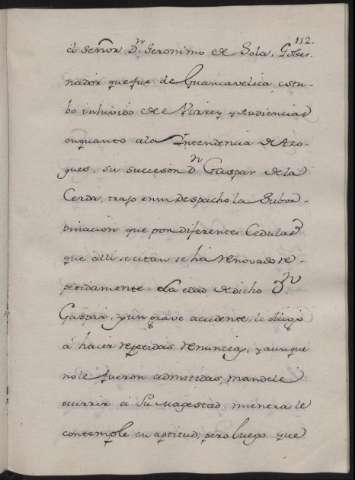 112.
el Señor Dn. Geronimo de Sola, Gover-
nador que fue de Guancavelica estu-
bo inhivido de el Virrey y Audiencias
en quanto a la Intendencia de Azo-
gues, su succesor Dn. Gaspar de la
Cerda, trajo en su despacho la Subor-
dinacion que por diferentes Cedulas
que alli se citan se ha renovado re-
petidamente. La edad de dicho Dn.
Gaspar, y un grave accidente, le obligó
á hacer repetidas renuncias, y aunque
no le fueron admitidas, mandele
ocurrir á Su Magestad, mientras le
contemplé en aptitud, pero luego que